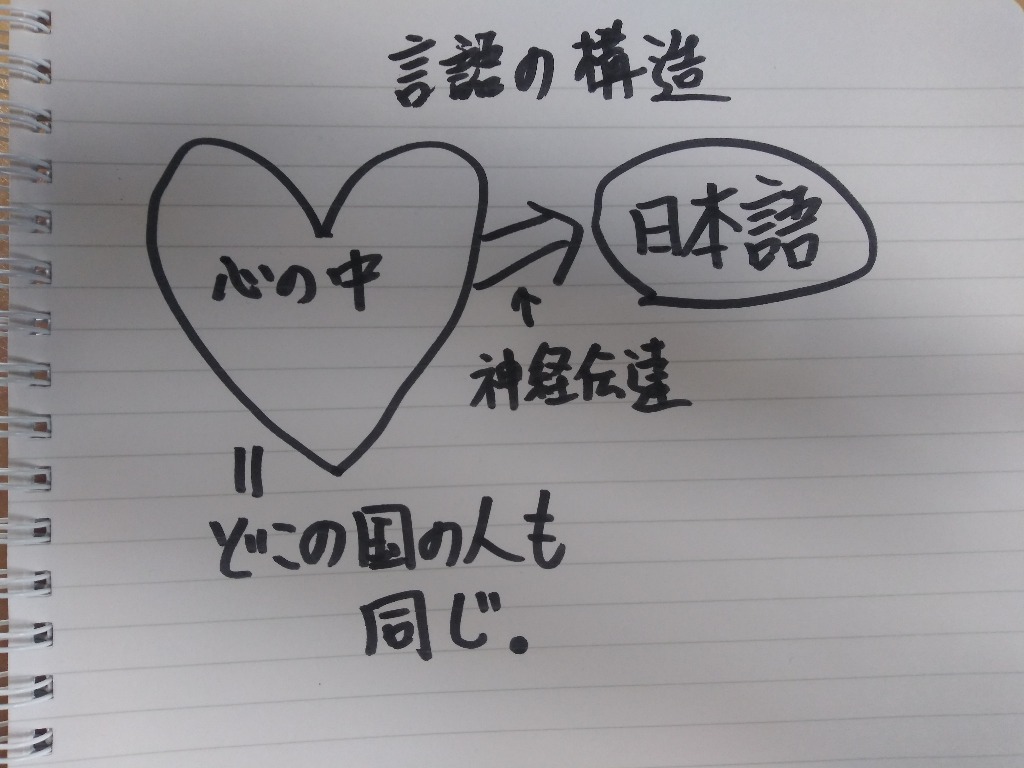 言語の構造
心の中
日本語
↑
神経伝達
=
どこの国の人も
同じ.